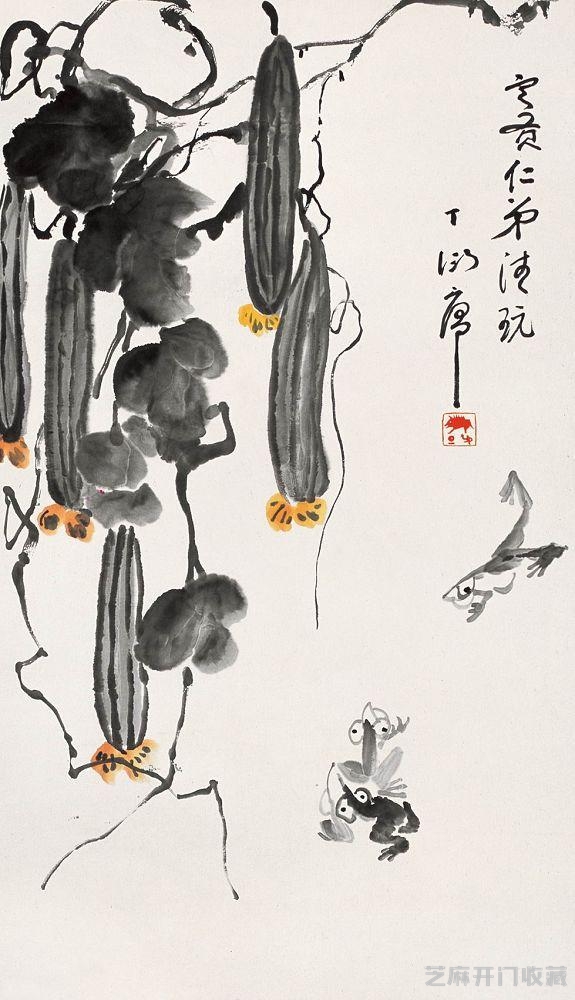 定黄仁弟清玩
丁衍庸
芝麻开门收藏